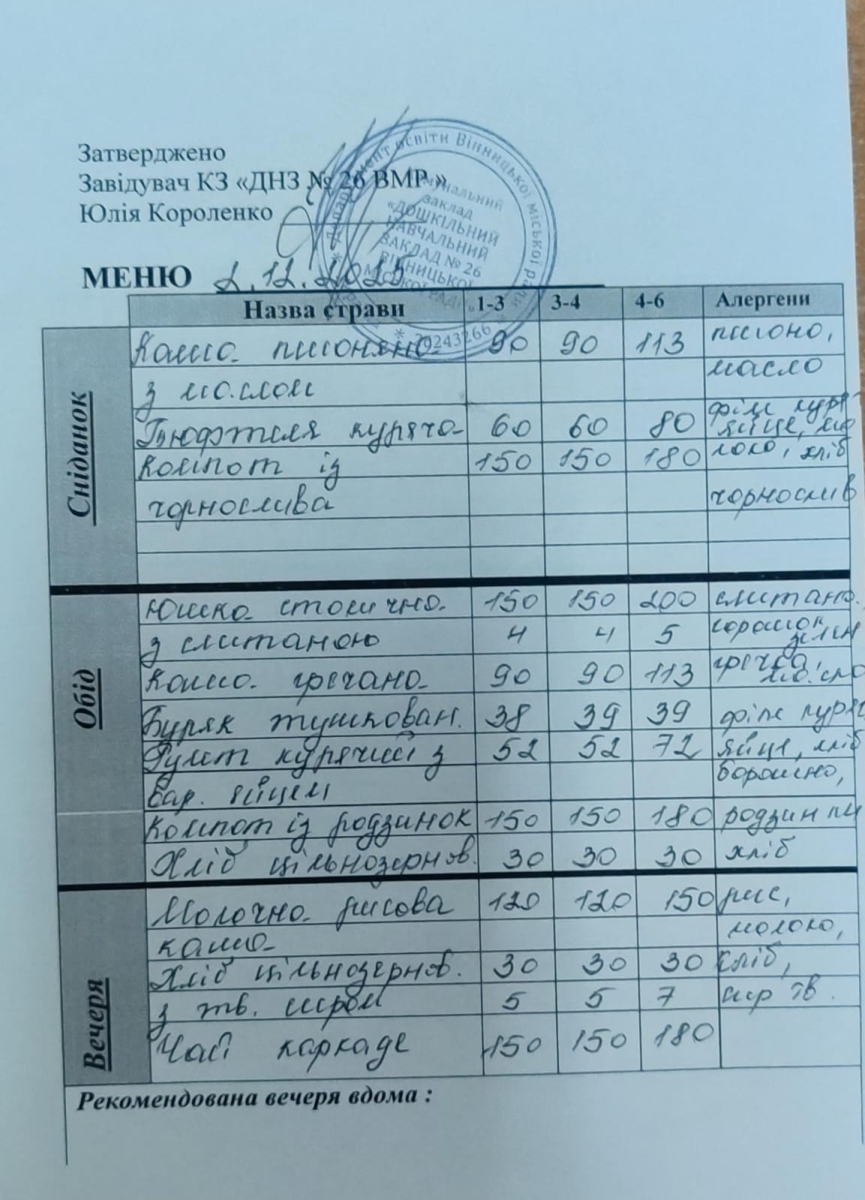 Затверджено
Завідувач КЗ «ДНЗ № 26 ВМР»
Юлія Короленко
Департамент освіти Вінницької міської ради
заклад
«ДОШКІЛЬНИЙ
НАВЧАЛЬНИЙ
ЗАКЛАД № 26
ВІННИЦЬКОЇ
МІСЬКОЇ РАДИ»
МЕНЮ 2.12.2025
Назва страви 1-3 3-4 4-6 Алергени
Сніданок
Каша пшоняна 90 90 113 пшоно,
з маслом масло
Тюфтеля куряча 60 60 80 філе куря
яйце, мо
Компот із 150 150 180 локо, хліб
чорнослива чорнослив
Обід
Юшка столична 150 150 200 сметана
з сметаною 4 4 5 горошок
зелен
Каша гречана 90 90 113 гречка,
Буряк тушкован. 38 39 39 філе куря
Рулет курячий з 52 52 72 яйце, хліб
вар. яйцем борошно,
Компот із родзинок 150 150 180 родзинки
Хліб цільнозернов. 30 30 30 хліб
Вечеря
Молочна рисова 120 120 150 рис,
каша молоко,
Хліб цільнозернов. 30 30 30 хліб,
з тв. сиром 5 5 7 сир тв.
Чай каркаде 150 150 180
Рекомендована вечеря вдома :